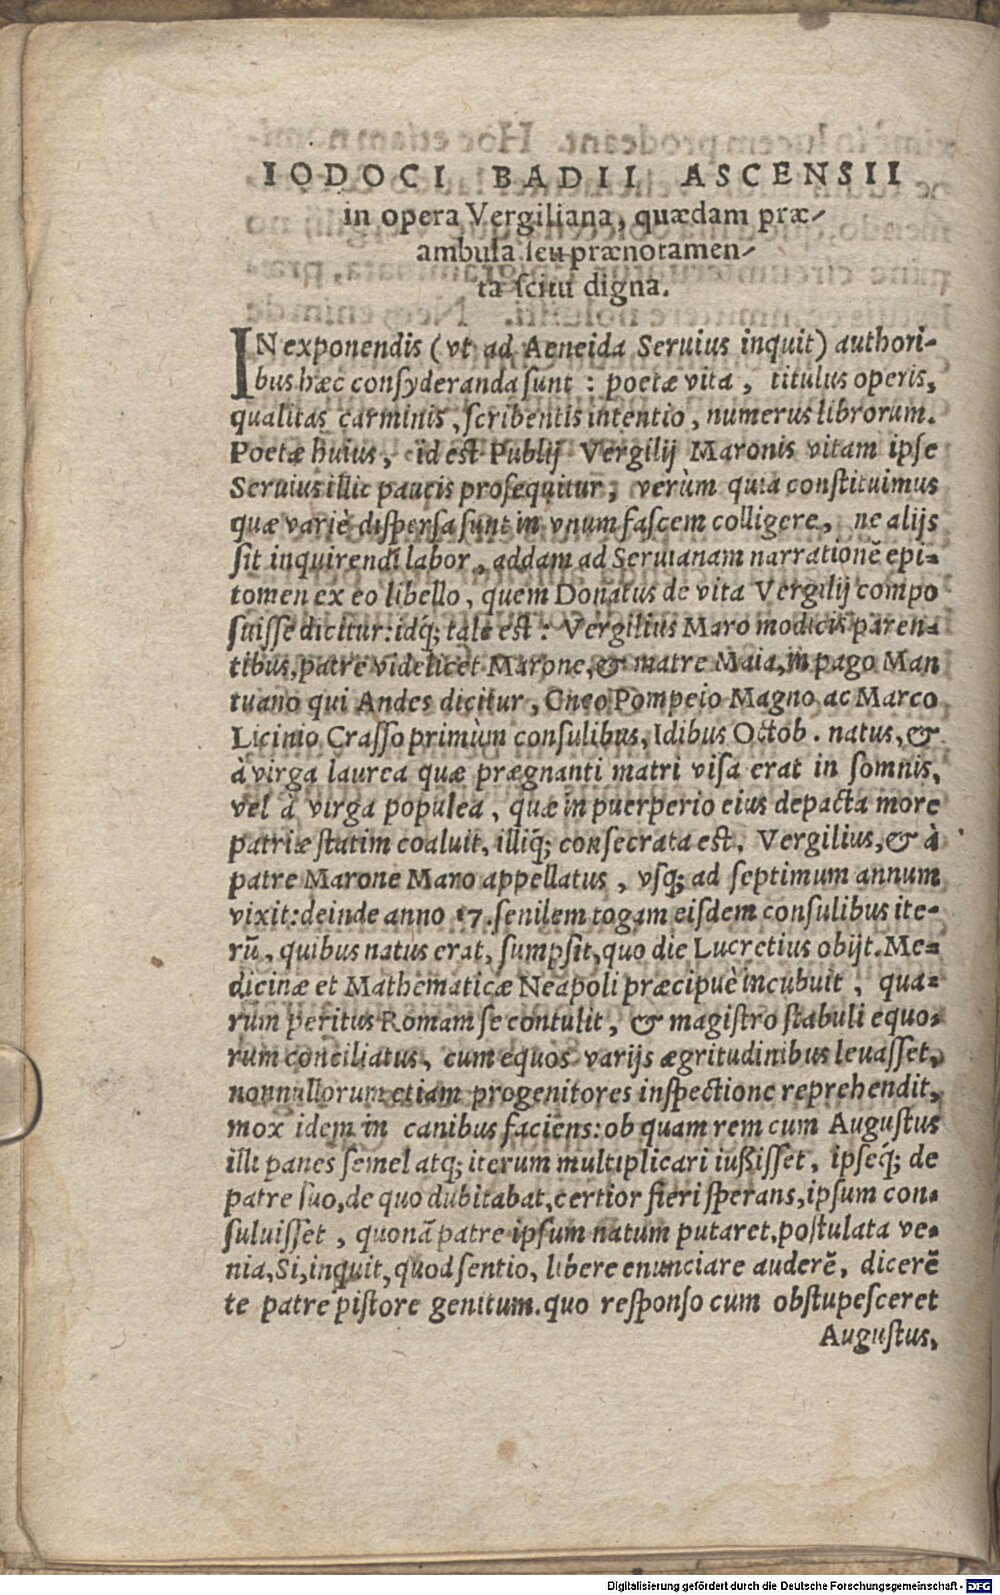 IODOCI BADII ASCENSII
in opera Vergiliana, quædam præ-
ambula ſeu prænotamen-
ta ſcitu digna.
IN exponendis (vt ad Aeneida Seruius inquit) authori-
bus hæc conſyderanda ſunt : poetæ vita, titulus operis,
qualitas carminis, ſcribentis intentio, numerus librorum.
Poetæ huius, id est Publij Vergilij Maronis vitam ipſe
Seruius illic paucis proſequitur, verùm quia conſtituimus
quæ variè diſperſa ſunt in vnum faſcem colligere, ne alijs
ſit inquirendi labor, addam ad Seruianam narrationē epi-
tomen ex eo libello, quem Donatus de vita Vergilij compo
ſuiſſe dicitur: idq; tale eſt : Vergilius Maro modicis paren-
tibus, patre videlicet Marone, & matre Maia, in pago Man
tuano qui Andes dicitur, Cneo Pompeio Magno ac Marco
Licinio Craſſo primùm conſulibus, Idibus Octob. natus, &
à virga laurea quæ prægnanti matri viſa erat in ſomnis,
vel à virga populea, quæ in puerperio eius depacta more
patriæ ſtatim coaluit, illiq; conſecrata eſt, Vergilius, & à
patre Marone Maro appellatus, vſq; ad ſeptimum annum
vixit: deinde anno 17. ſenilem togam eiſdem conſulibus ite-
rū, quibus natus erat, ſumpſit, quo die Lucretius obijt. Me-
dicinæ et Mathematicæ Neapoli præcipuè incubuit, qua-
rum peritus Romam ſe contulit, & magiſtro ſtabuli equo-
rum conciliatus, cum equos varijs ægritudinibus leuaſſet,
nonnullorum etiam progenitores inſpectione reprehendit,
mox idem in canibus faciens: ob quam rem cum Auguſtus
illi panes ſemel atq; iterum multiplicari iußiſſet, ipſeq́; de
patre ſuo, de quo dubitabat, certior fieri ſperans, ipſum con-
ſuluiſſet, quonā patre ipſum natum putaret, poſtulata ve-
nia, Si, inquit, quod ſentio, libere enunciare auderē, dicerē
te patre piſtore genitum. quo reſponſo cum obſtupeſceret
Auguſtus,
Digitalisierung gefördert durch die Deutsche Forschungsgemeinschaft - DFG